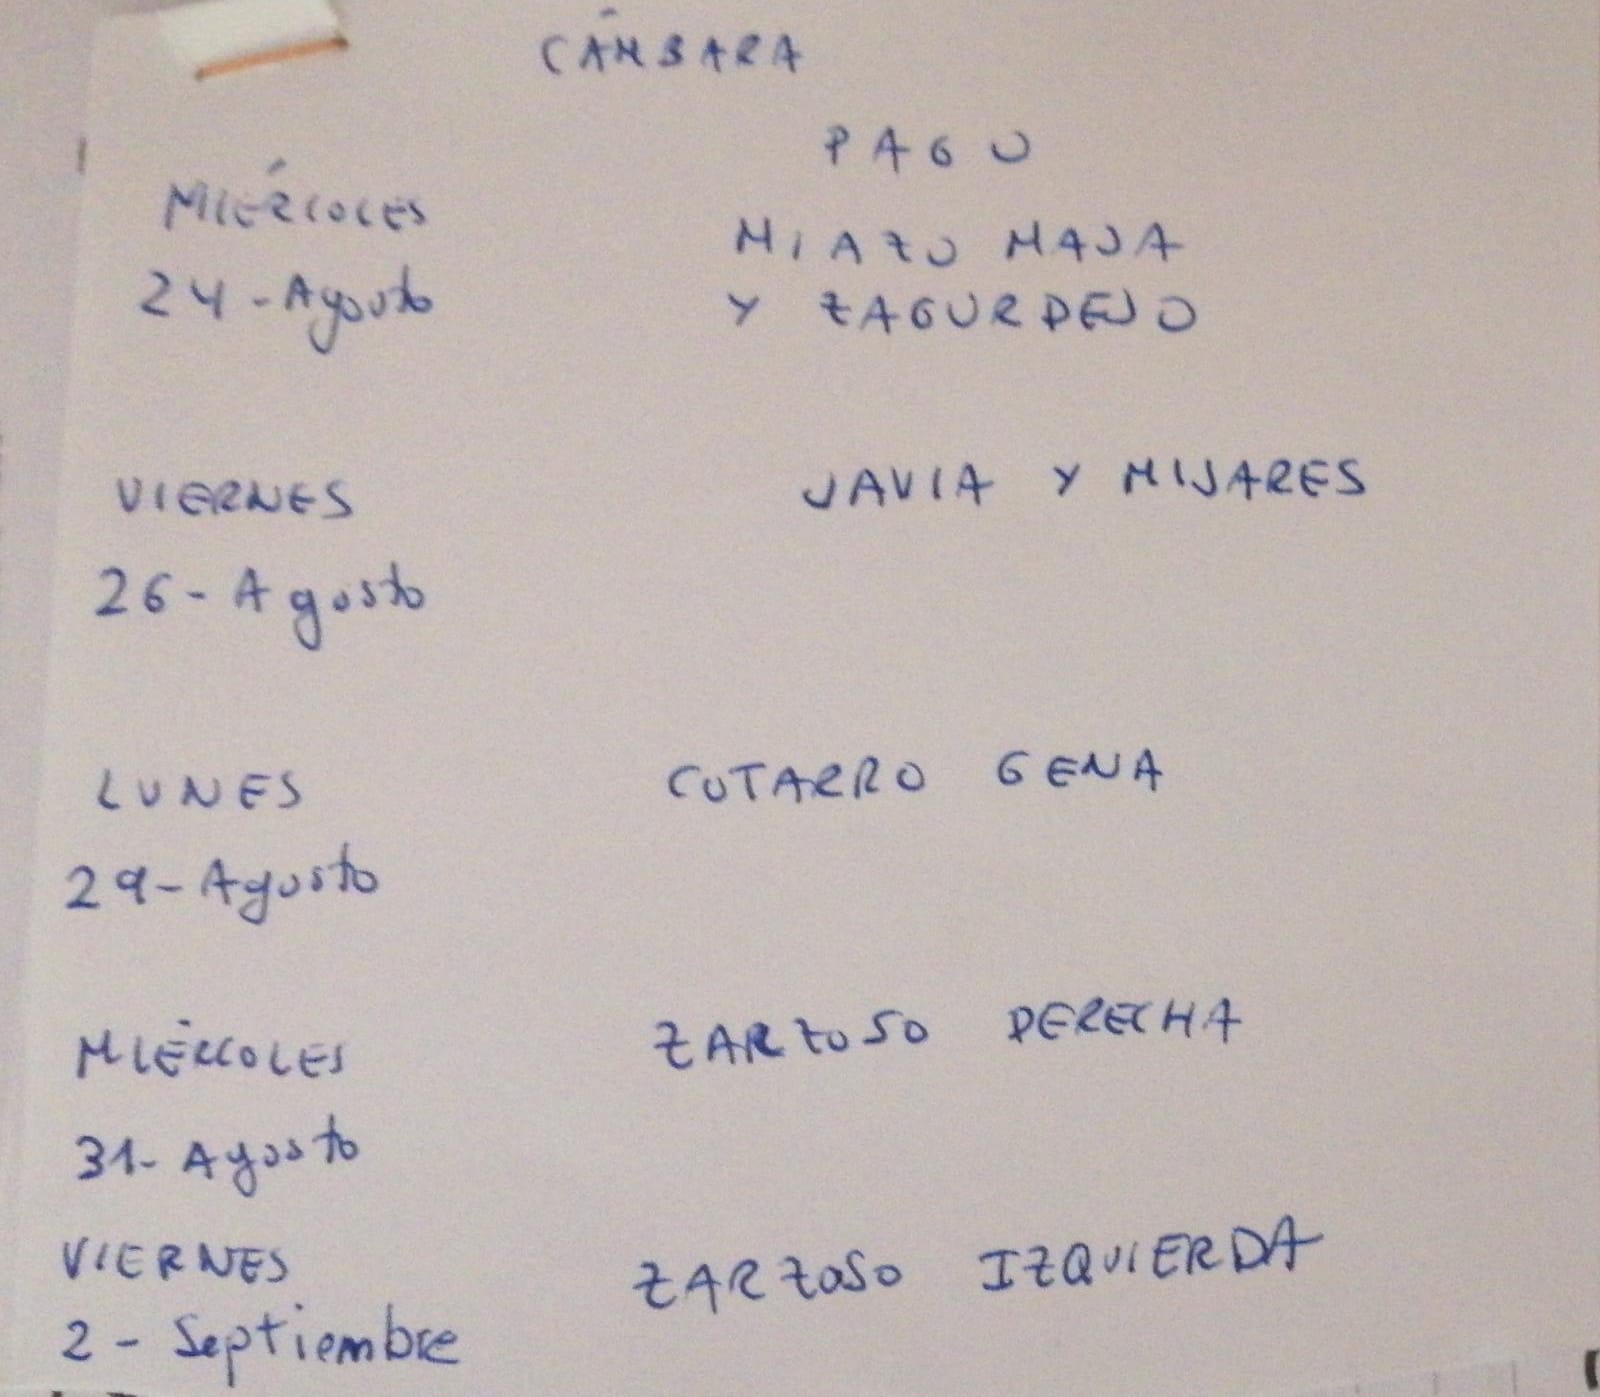 CÁMBARA
PAGO
MIÉRCOLES
MIAZO MAJA
24 - Agosto
Y ZAGURDEJO
VIERNES
JAVIA Y MIJARES
26 - Agosto
LUNES
COTARRO GENA
29 - Agosto
MIÉRCOLES
ZARZOSO DERECHA
31 - Agosto
VIERNES
ZARZOSO IZQUIERDA
2 - Septiembre